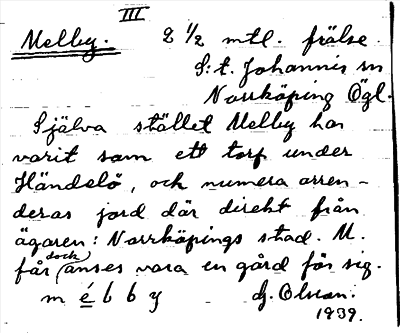 III
Melby. 2 1/2 mtl. frälse.
S:t. Johannis sn
Norrköping Ögl.
Själva stället Melby har
varit som ett torp under
Händelö, och numera arren-
deras jord där direkt från
ägaren: Norrköpings stad. M.
får dock anses vara en gård för sig.
m é b b y G. Olson.
1939.